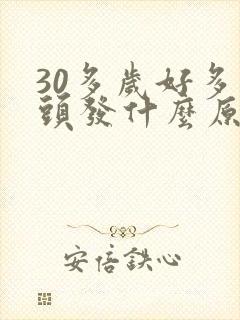 30多歲好多
頭發什麼原
安倍鉄心